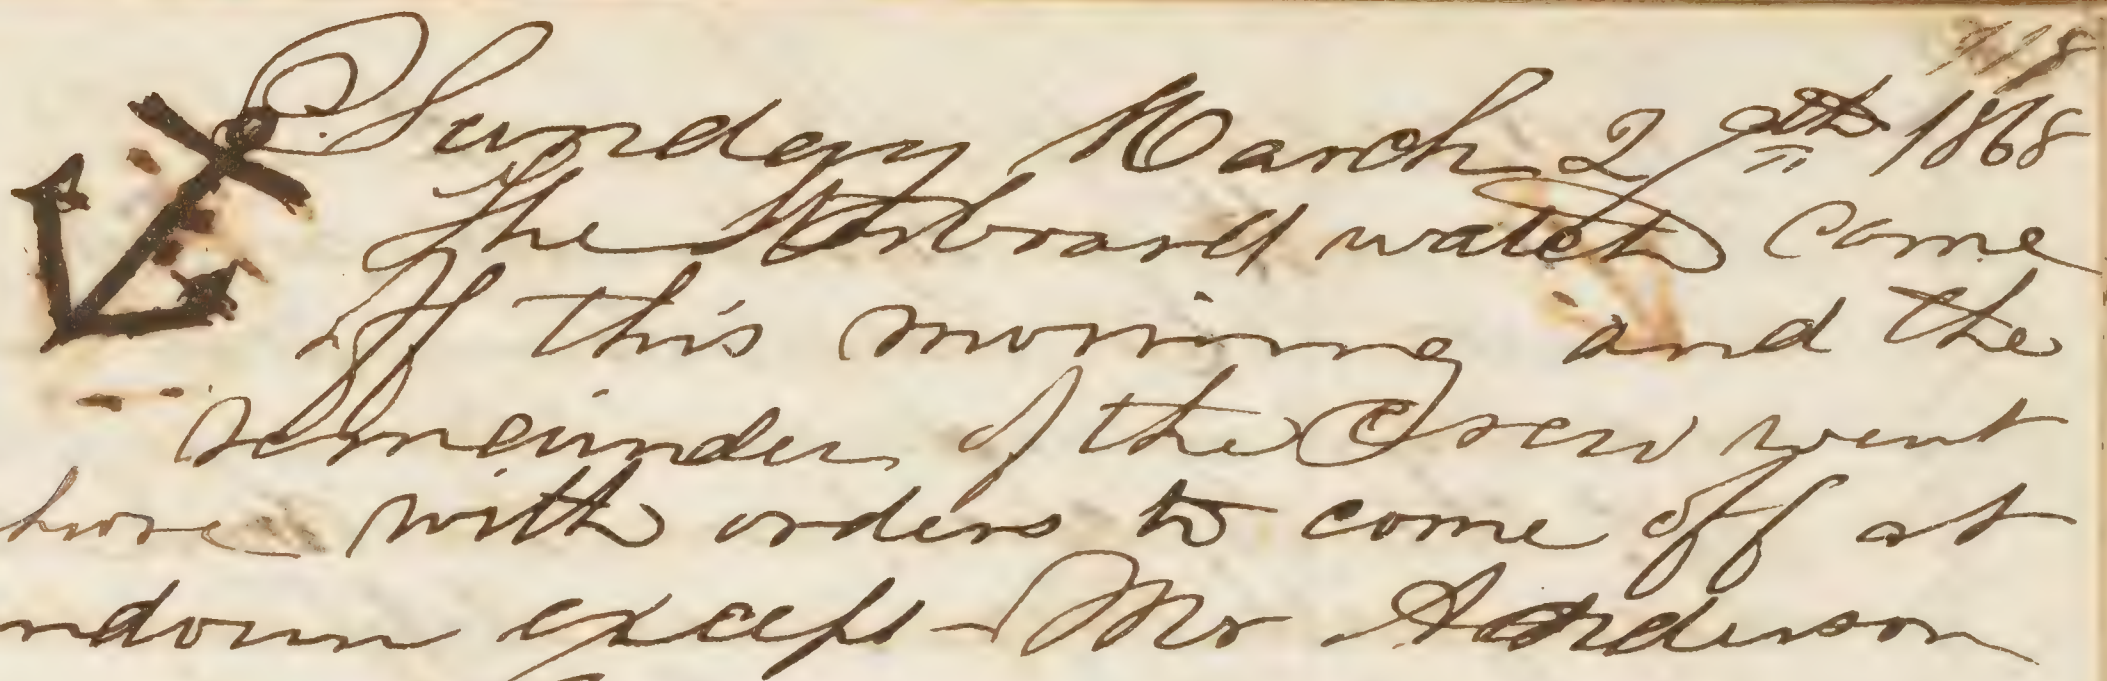 Sunday March 29th 1868
The Starboard watch Come
off this morning and the
remainder of the Crew went
hore with orders to come off at
ndown except - Mr Anderson